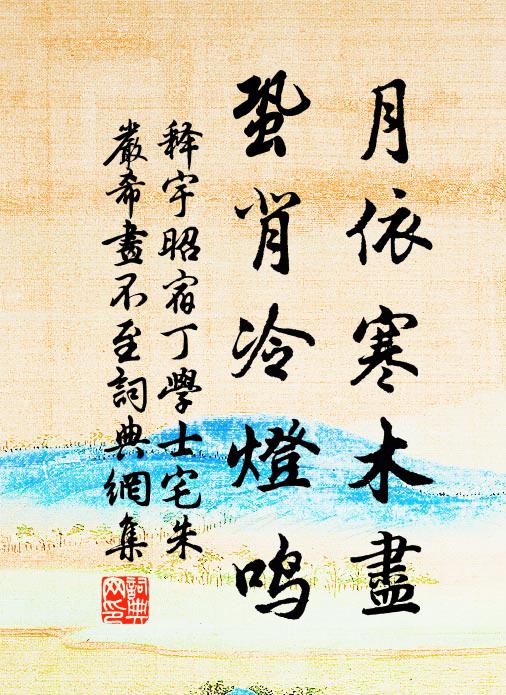 月依寒木盡
蛩背冷燈鳴
释宇昭宿丁學士宅朱
嚴希晝不至詞典網集
詞典網印